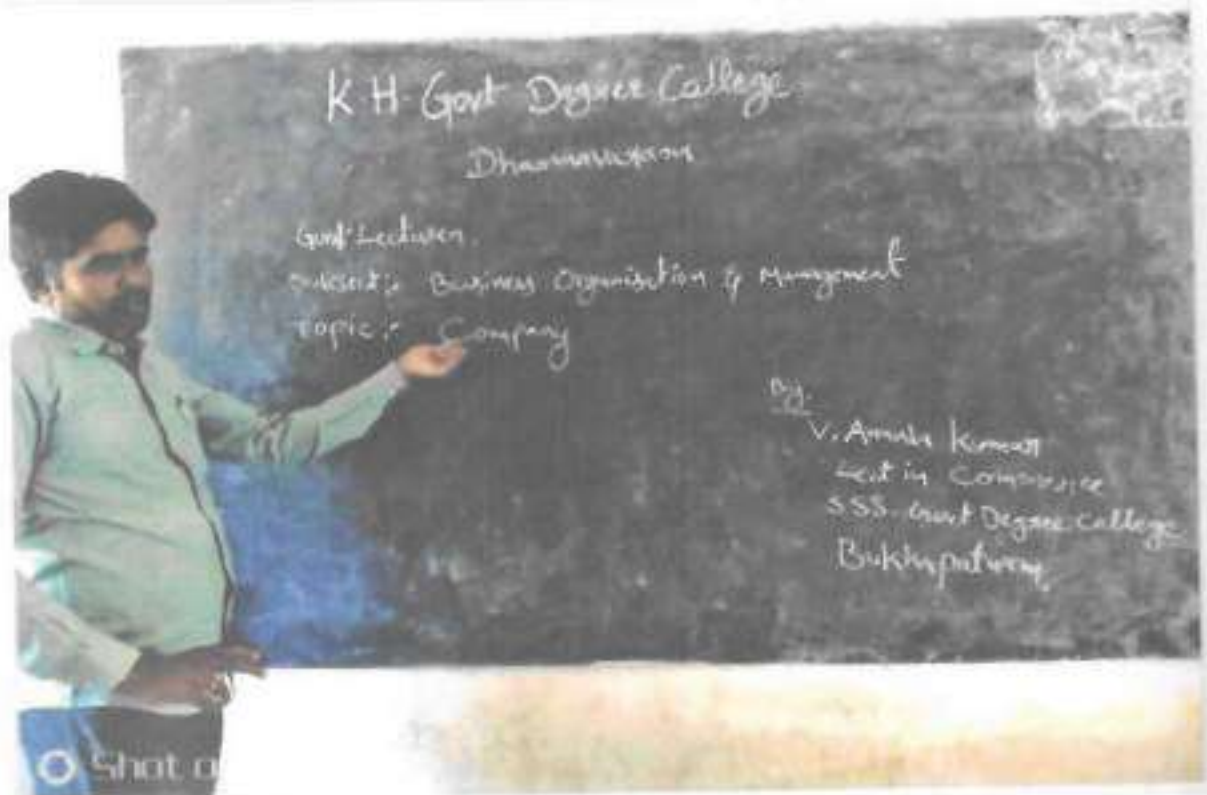 K.H. Govt Degree College
Dharmavaram
Guest Lecturer.
Subject :- Business Organisation & Management
Topic :- Company
By.
V. Kumar
Lect in Commerce
SSS Govt Degree College
Bukkapatnam
Shot o